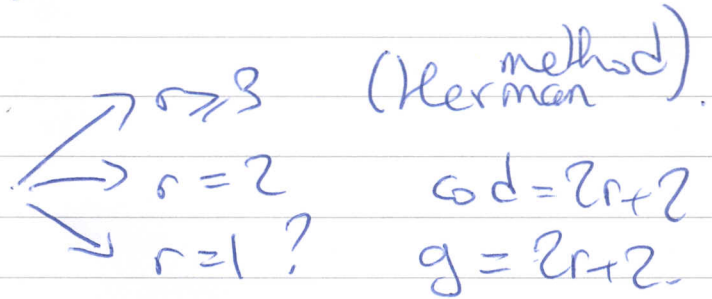 → r ⩾ 3 (Herman method).
→ r = 2 cod = 2r+2
→ r = 1 ? g = 2r+2.